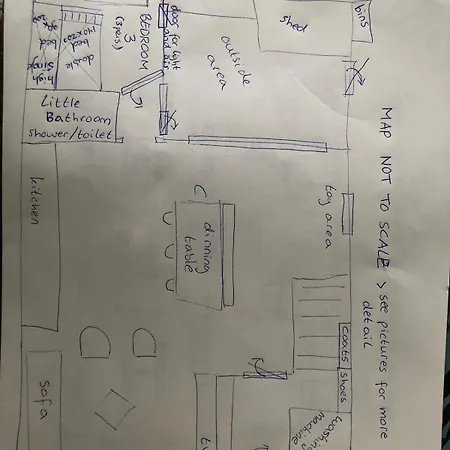 MAP NOT TO SCALE > see pictures for more
detail
bins
shed
outside
area
door for light
and air
BEDROOM
3
(3pers.)
double
bed
140x203
high
single
bed
Little
Bathroom
shower/toilet
kitchen
dinning
table
toy area
coats
shoes
washing
machine
sofa